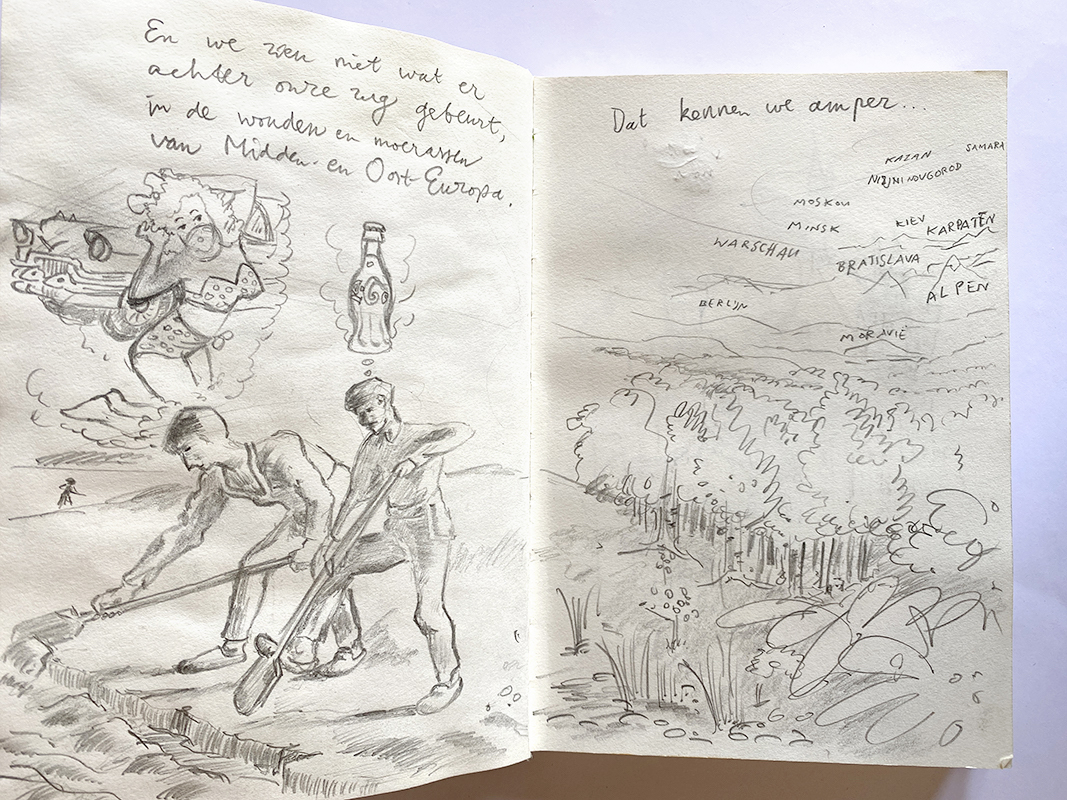 En we zien niet wat er
achter onze rug gebeurt,
in de wouden en moerassen
van Midden- en Oost Europa.
Dat kennen we amper...
SAMARA
KAZAN
NIZJNI NOVGOROD
MOSKOU
MINSK
KIEV
KARPATEN
WARSCHAU
BRATISLAVA
ALPEN
BERLIJN
MORAVIË